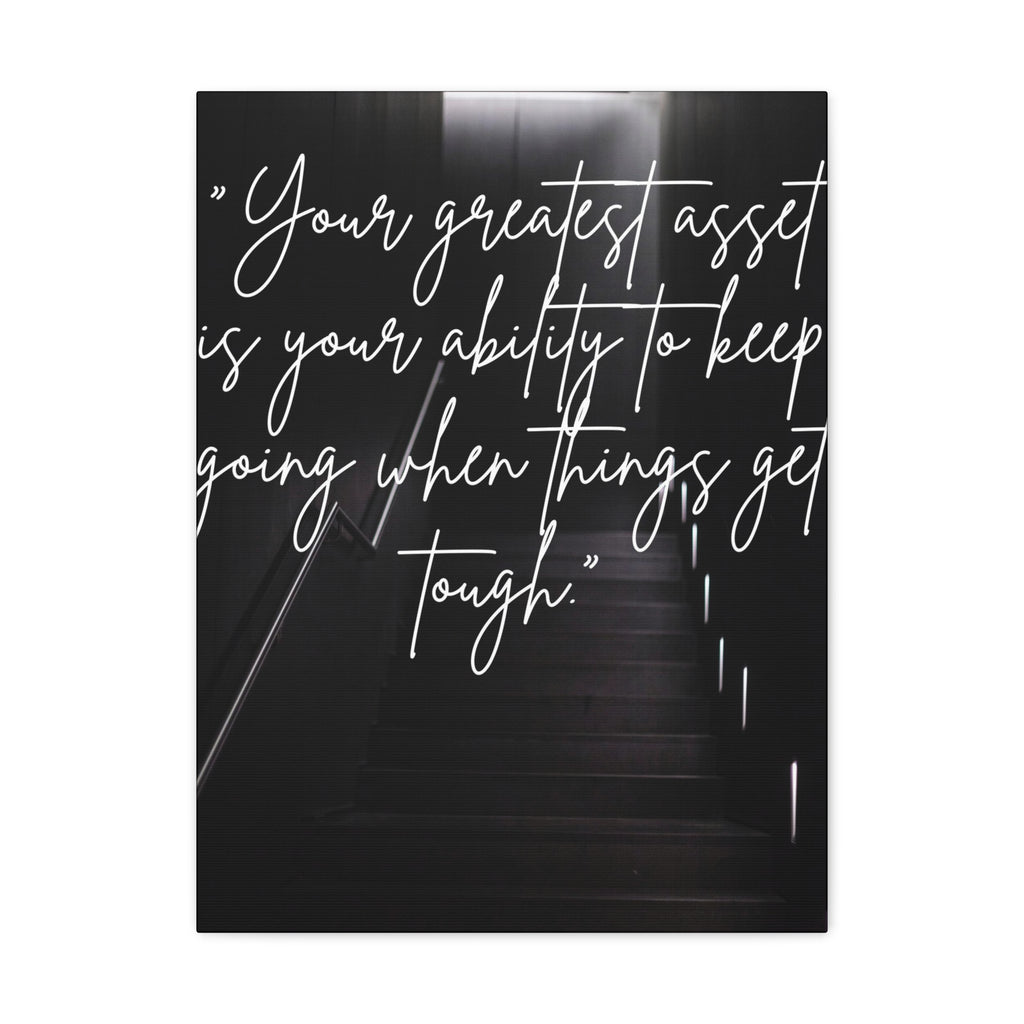 ”Your greatest asset
is your ability to keep
going when things get
tough.”